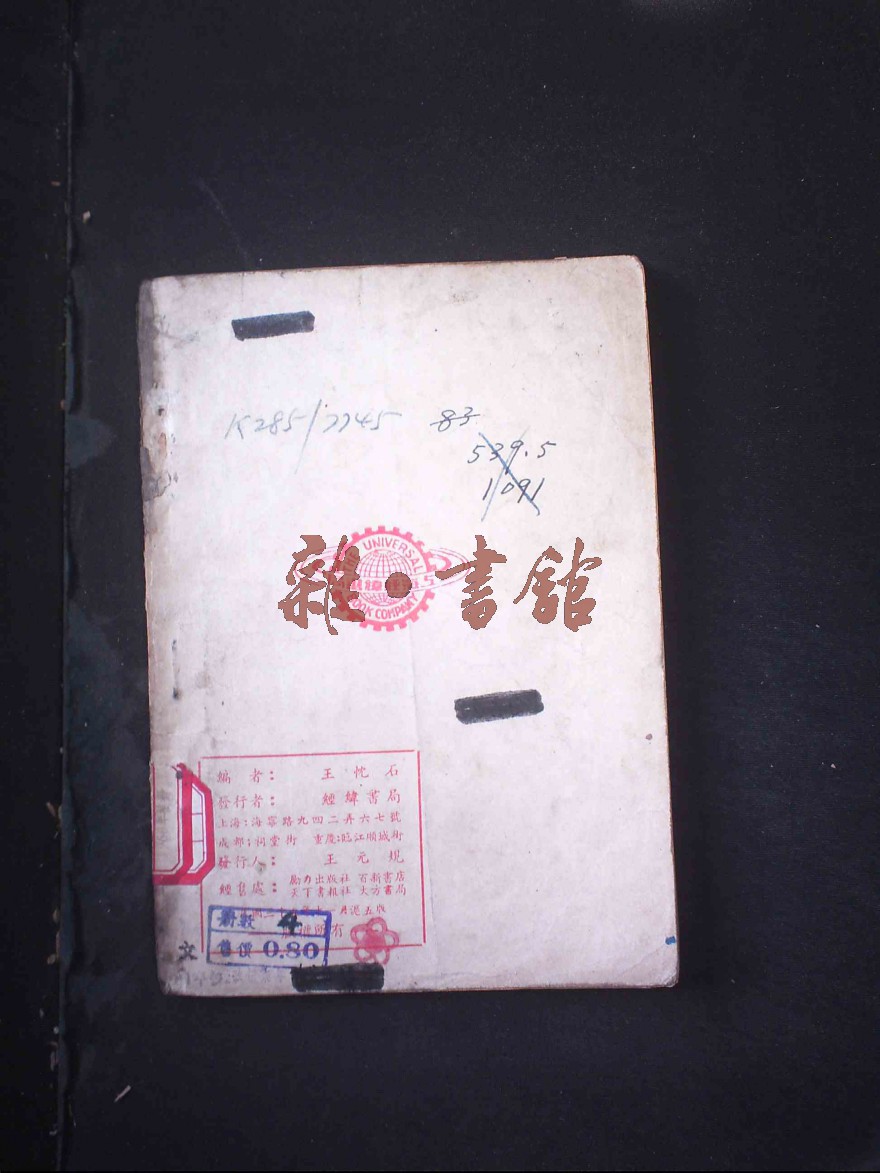 K285/7745 83
539.5
1091
UNIVERSAL
BOOK COMPANY
雜•書館
編者：王忱石
發行者：經緯書局
上海：海寧路九四二弄六七號
成都：祠堂街 重慶：臨江順城街
發行人：王元規
經售處：勵力出版社 百新書店
天下書報社 大方書局
月滬五版
有
冊數 4
售價 0.80
文